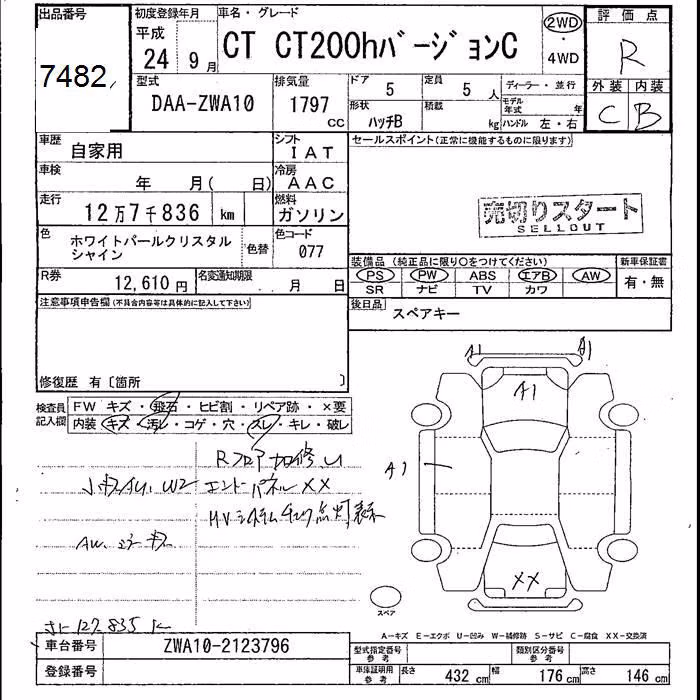 出品番号 初度登録年月 車名・グレード 評価点
7482 平成 24年 9月 CT CT200hバージョンC 2WD・4WD R
型式 排気量 ドア 定員 ディーラー・並行 外装 内装
DAA-ZWA10 1797 CC 5 5人 モデル年式 年 C B
形状 積載
ハッチB kg ハンドル 左・右
車歴 自家用 シフト IAT セールスポイント(正常に機能するものに限ります)
車検 年 月( 日) 冷房 AAC
走行 12万7千836 km 燃料 ガソリン
売切りスタート
SELLOUT
色 ホワイトパールクリスタルシャイン 色替 色コード 077
装備品 (純正品に限り〇をつけてください) 新車保証書
R券 12,610円 名変通知期限 月 日 PS PW ABS エアB AW 有・無
SR ナビ TV カワ
注意事項申告欄(不具合内容等は具体的に記入して下さい) 後日品
スペアキー
修復歴 有〔箇所 〕
検査員記入欄 FW キズ・飛石・ヒビ割・リペア跡・×要
内装 キズ・汚レ・コゲ・穴・スレ・キレ・破レ
A1 A1
A1
Rフロア加修し
小キズAU、W2 エンドパネルXX
A1
HVシステムチェック点灯表示
AW
XX
スペア
127,835 K
A-キズ E-エクボ U-凹み W-補修跡 S-サビ C-腐食 XX-交換済
車台番号 ZWA10-2123796 型式指定番号 参考 類別区分番号 参考
登録番号 車庫証明用 参考 長さ 432 cm 幅 176 cm 高さ 146 cm